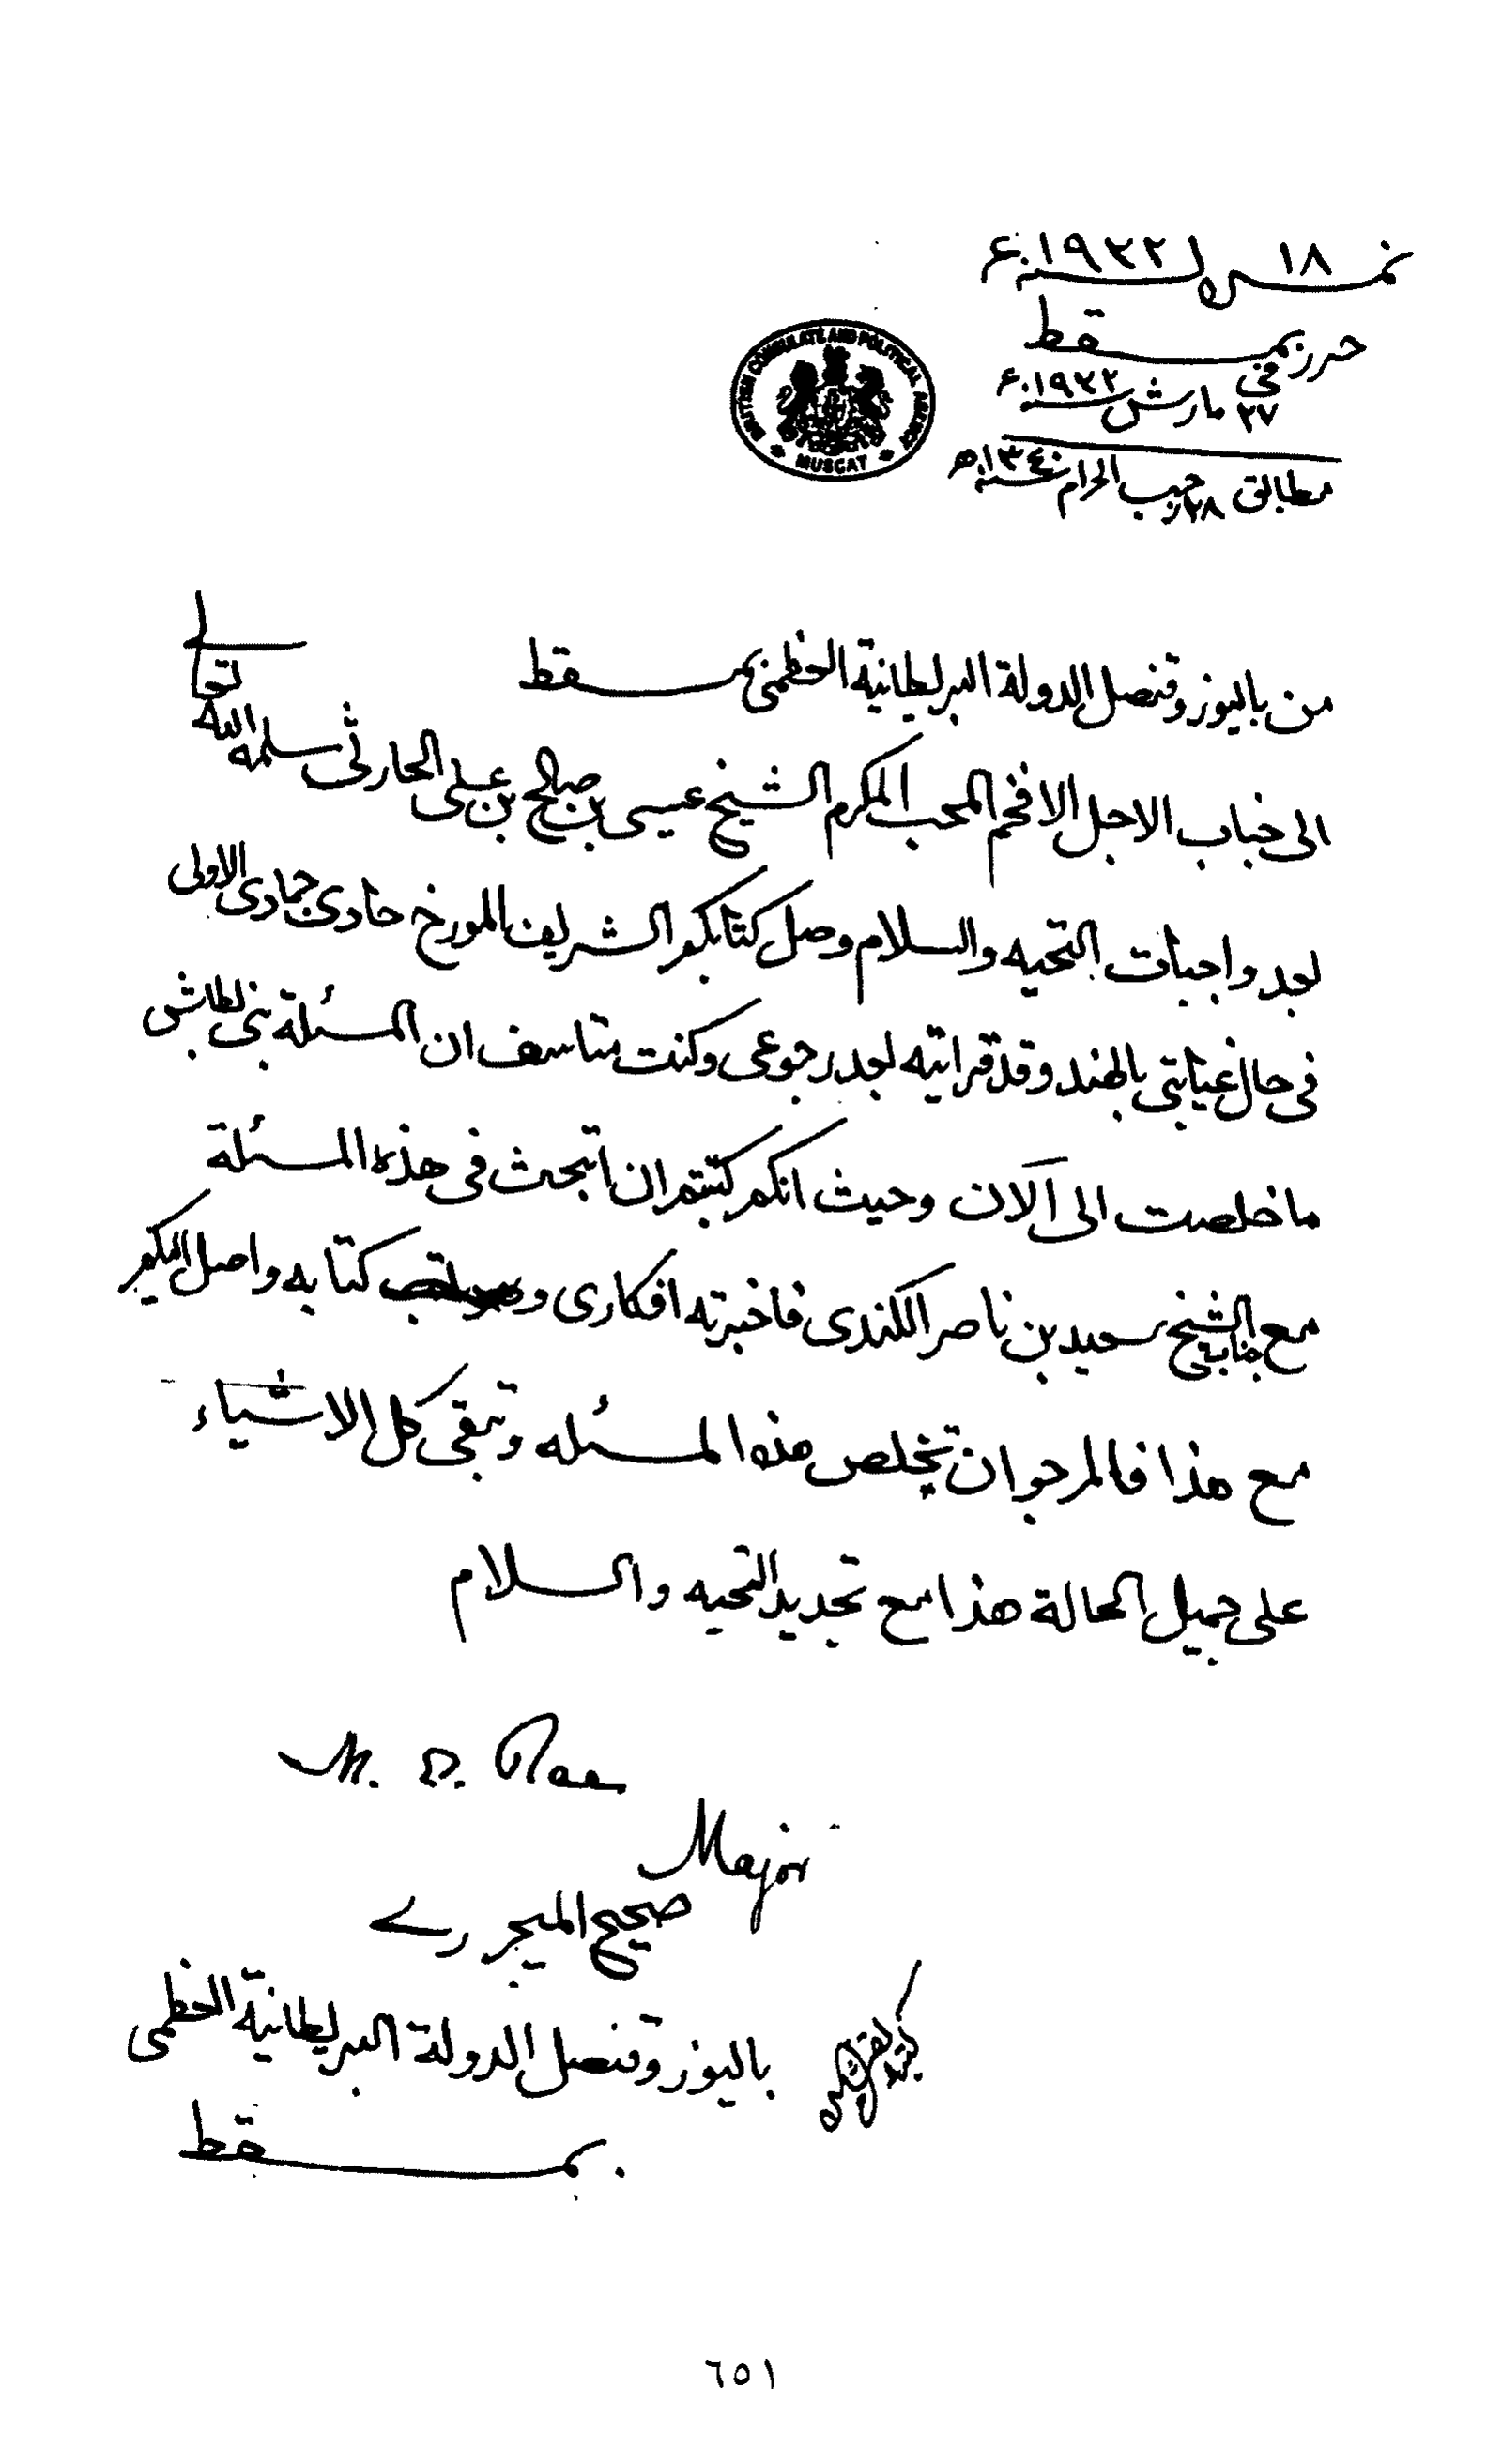 نمبر ١٨ لسنة ١٩٢٢ء
حرر بمسقط
في ٢٧ مارش سنة ١٩٢٢ء
مطابق ٢٨ رجب الحرام سنة ١٣٤٠ھ
BRITISH CONSULATE AND POLITICAL AGENCY
MUSCAT
من باليوز وقنصل الدولة البريطانية العظمى بمسقط
الى جناب الاجل الافخم المحب المكرم الشيخ عيسى بن صالح بن علي الحارثي سلمه الله تعالى
بعد واجبات التحيه والسلام وصل كتابكم الشريف المورخ حادى جمادى الاولى
في حال غيابتي بالهند وقد قراته بعد رجوعى وكنت متاسف ان المسئلة بني بطاش
ما خلصت الى الآن وحيث انكم كتبتم ان ابحث في هذه المسئلة
مع جناب الشيخ سعيد بن ناصر الكندى فاخبرته افكارى و كتابه واصل اليكم
مع هذا فالمرجو ان تخلص هذه المسئله وتبقى كل الاشياء
على جميل الحالة هذا مع تجديد التحيه والسلام
M. E. Rae
Major
صحيح الميجر رے
باليوز وقنصل الدولة البريطانية العظمى
بمسقط
٦٥١